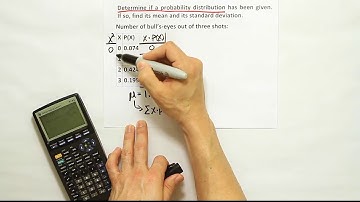 Determine if a probability distribution has been given.
If so, find its mean and its standard deviation.
Number of bull's-eyes out of three shots:
x² X P(X) X·P(X)
0 0 0.074 0
2 0.42
3 0.19
μ = 1.
↳ Σx·P